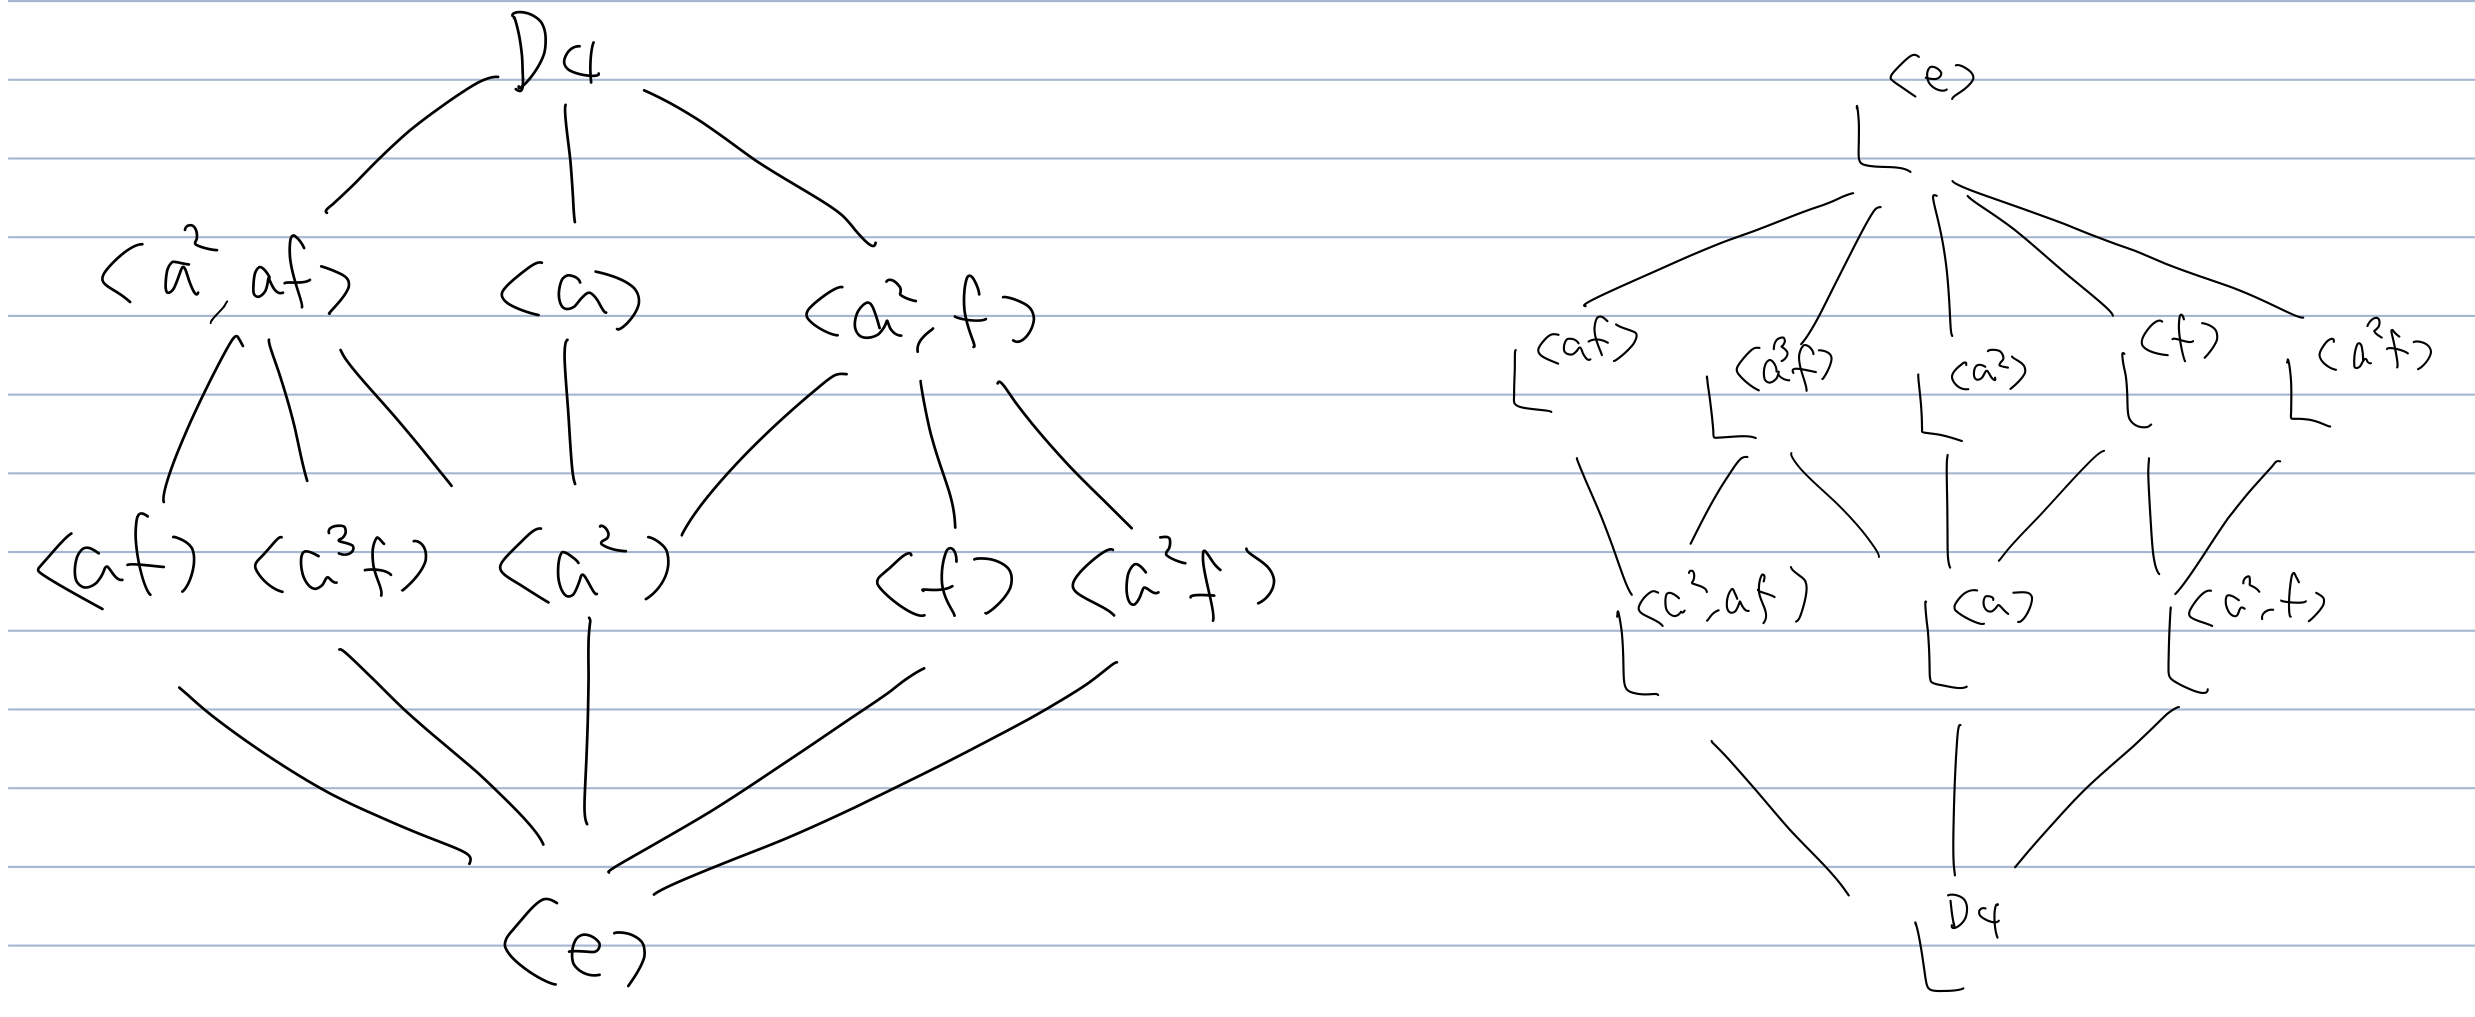 D4
⟨a², af⟩ ⟨a⟩ ⟨a², f⟩
⟨af⟩ ⟨a³f⟩ ⟨a²⟩ ⟨f⟩ ⟨a²f⟩
⟨e⟩
⟨e⟩
L
⟨af⟩ ⟨a³f⟩ ⟨a²⟩ ⟨f⟩ ⟨a²f⟩
L L L L L
⟨a², af⟩ ⟨a⟩ ⟨a², f⟩
L L L
D4
L